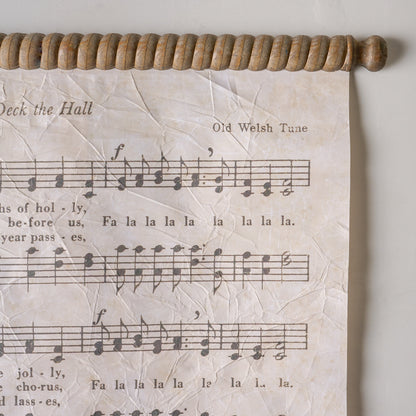 Deck the Hall
Old Welsh Tune
f
of hol - ly,
be-fore us, Fa la la la la la la la la.
year pass - es,
f
jol - ly,
cho-rus, Fa la la la la la la la la.
lass-es,